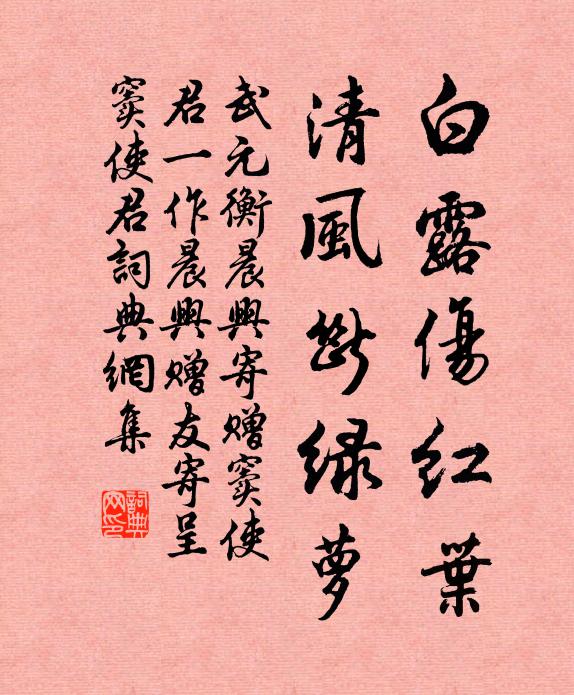 白露傷紅葉
清風斷綠蘿
武元衡晨興寄贈竇使
君一作晨興贈友寄呈
竇使君詞典網集
詞典网印